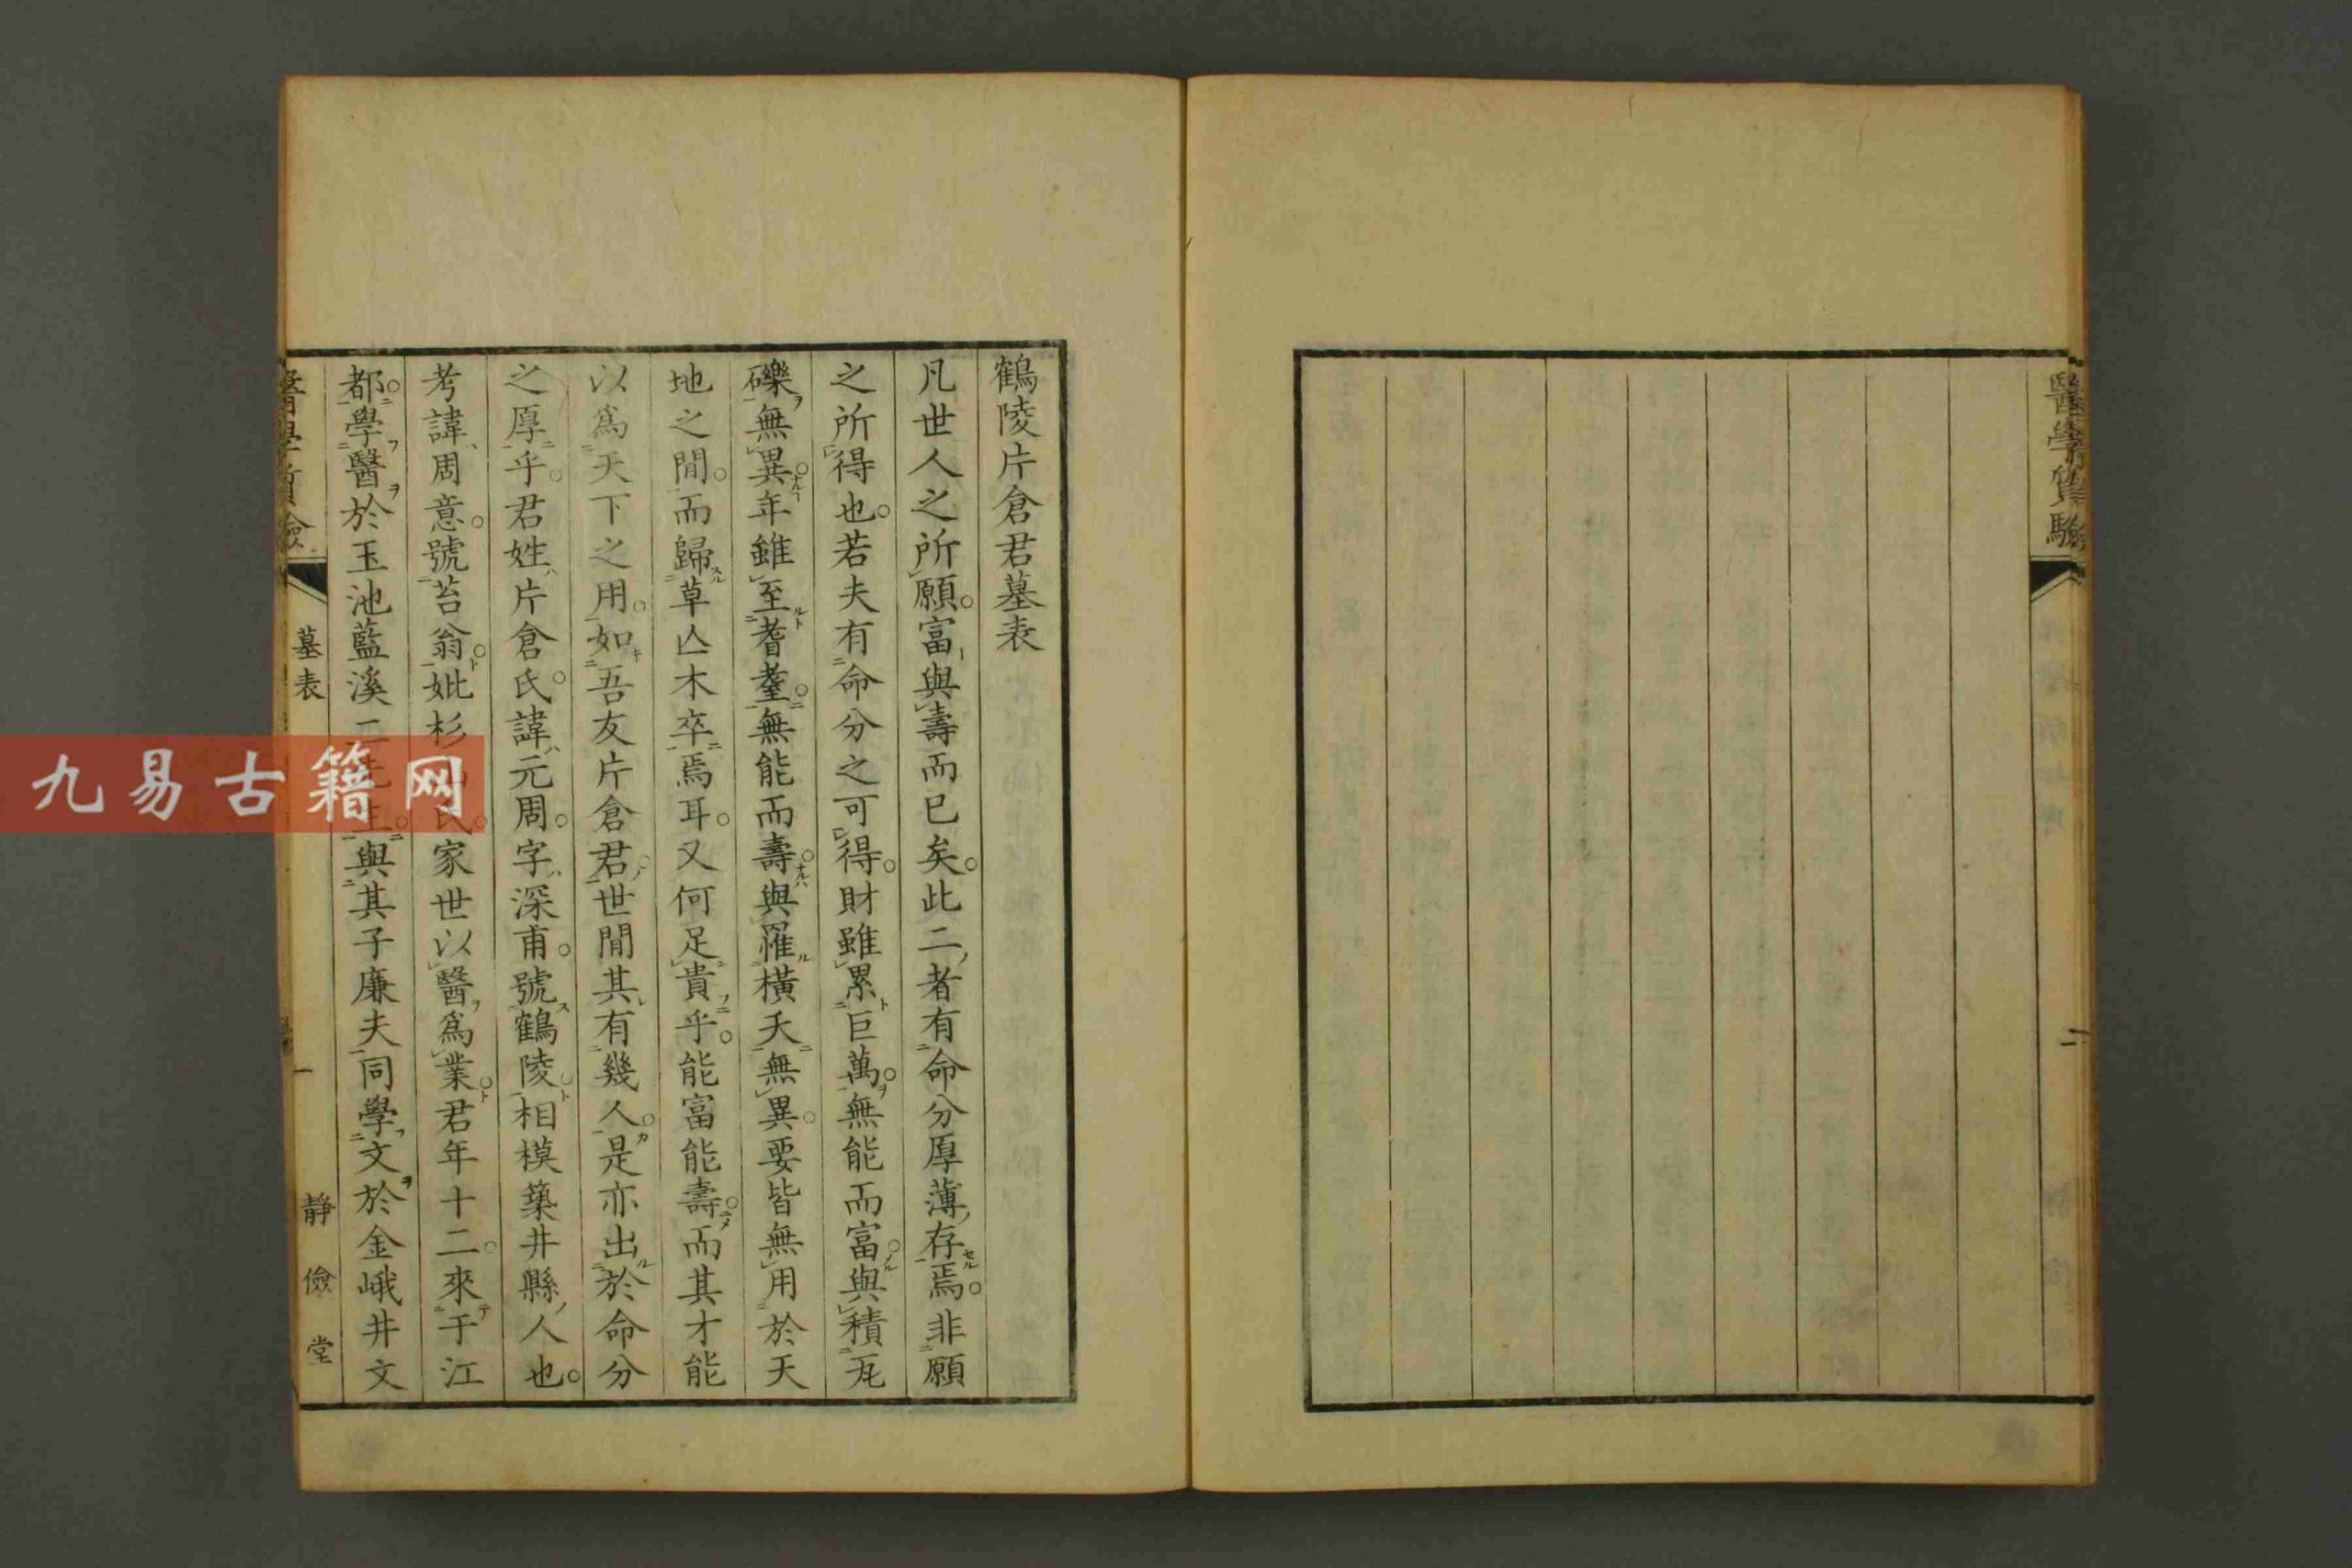 醫學質驗
二
鶴陵片倉君墓表
凡世人之所願。富與壽而已矣。此二者有命分厚薄存焉。非願
之所得也。若夫有命分之可得。財雖累巨萬。無能而富。與積瓦
礫無異。年雖至耆耋。無能而壽。與罹橫夭無異。要皆無用於天
地之間。而歸草亾木卒焉耳。又何足貴乎。能富能壽。而其才能
以爲天下之用。如吾友片倉君。世間其有幾人。是亦出於命分
之厚乎。君姓片倉氏。諱元周。字深甫。號鶴陵。相模築井縣人也。
考諱周意。號苔翁。妣杉山氏。家世以醫爲業。君年十二。來于江
都。學醫於玉池藍溪二先生。與其子廉夫同學文於金峨井文
醫學質驗
墓表
一
靜儉堂
九易古籍网